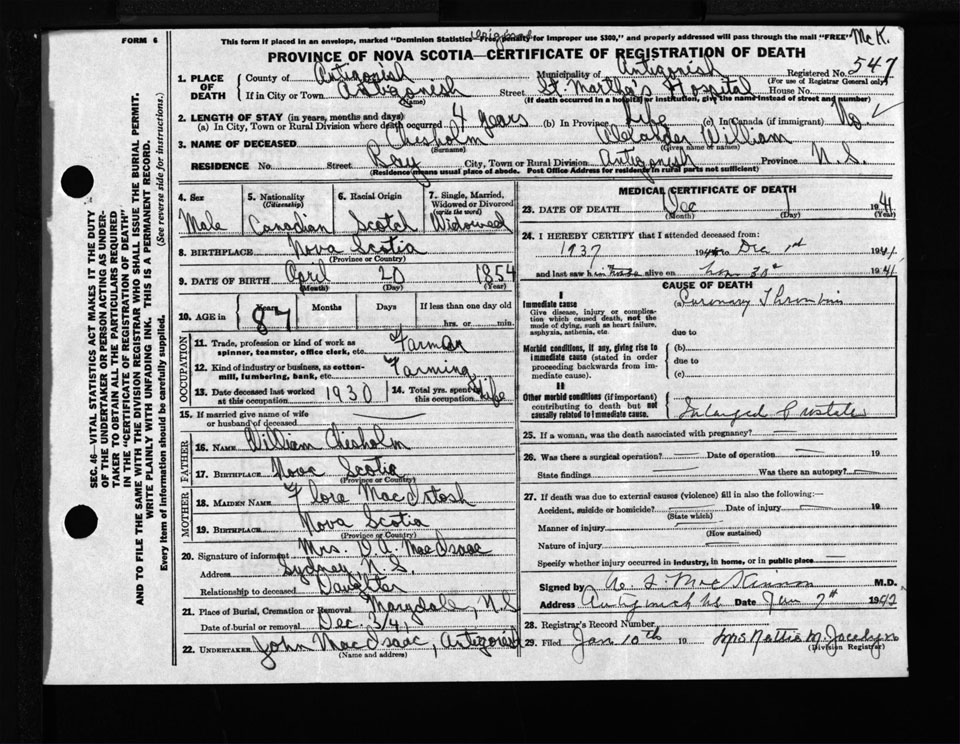 FORM 6
This form if placed in an envelope, marked "Dominion Statistics—Free, penalty for improper use $300," and properly addressed will pass through the mail "FREE" McK.
PROVINCE OF NOVA SCOTIA—CERTIFICATE OF REGISTRATION OF DEATH
1. PLACE OF DEATH County of Antigonish Municipality of Antigonish Registered No. 547
(For use of Registrar General only)
If in City or Town Antigonish Street St. Martha's Hospital House No.
(Name) (If death occurred in a hospital or institution, give the name instead of street and number)
2. LENGTH OF STAY (in years, months and days)
(a) In City, Town or Rural Division where death occurred 4 years (b) In Province Life (c) In Canada (if immigrant) No.
3. NAME OF DECEASED Chisholm Alexander William
(Surname) (Given name or names)
RESIDENCE No. Street Bay City, Town or Rural Division Antigonish Province N.S.
(Residence means usual place of abode. Post Office Address for residence in rural parts not sufficient)
4. Sex Male
5. Nationality (Citizenship) Canadian
6. Racial Origin Scotch
7. Single, Married, Widowed or Divorced (write the word) Widowed
8. BIRTHPLACE Nova Scotia
(Province or Country)
9. DATE OF BIRTH April 20 1854
(Month) (Day) (Year)
10. AGE in Years Months Days If less than one day old
87 hrs. or min.
OCCUPATION
11. Trade, profession or kind of work as spinner, teamster, office clerk, etc. Farmer
12. Kind of industry or business, as cotton-mill, lumbering, bank, etc. Farming
13. Date deceased last worked at this occupation 1930 14. Total yrs. spent in this occupation Life
15. If married give name of wife or husband of deceased
FATHER
16. NAME William Chisholm
17. BIRTHPLACE Nova Scotia
(Province or Country)
MOTHER
18. MAIDEN NAME Flora MacIntosh
19. BIRTHPLACE Nova Scotia
(Province or Country)
20. Signature of informant Mrs. D. A. MacIsaac
Address Sydney N.S.
Relationship to deceased Daughter
21. Place of Burial, Cremation or Removal Marydale, N.S
Date of burial or removal Dec. 3/41
22. UNDERTAKER John MacIsaac, Antigonish
(Name and address)
MEDICAL CERTIFICATE OF DEATH
23. DATE OF DEATH Dec 1 1941
(Month) (Day) (Year)
24. I HEREBY CERTIFY that I attended deceased from:
1937 to Dec 1st 1941
and last saw h alive on Nov 30th 1941
CAUSE OF DEATH
I
Immediate cause (a) Coronary Thrombosis
Give disease, injury or complication which caused death, not the mode of dying, such as heart failure, asphyxia, asthenia, etc.
due to
Morbid conditions, if any, giving rise to immediate cause (stated in order proceeding backwards from immediate cause).
(b)
due to
(c)
II
Other morbid conditions (if important) contributing to death but not causally related to immediate cause.
Enlarged prostate
25. If a woman, was the death associated with pregnancy?
26. Was there a surgical operation? Date of operation 19
State findings Was there an autopsy?
27. If death was due to external causes (violence) fill in also the following:—
Accident, suicide or homicide? Date of injury 19
(State which)
Manner of injury
(How sustained)
Nature of injury
Specify whether injury occurred in industry, in home, or in public place
Signed by MacKinnon M.D.
Address Antigonish NS Date Jan 7th 1942
28. Registrar's Record Number
29. Filed Jan 10th 19 Mrs Nettie M. Jocelyn
(Division Registrar)
SEC. 46—VITAL STATISTICS ACT MAKES IT THE DUTY
OF THE UNDERTAKER OR PERSON ACTING AS UNDERTAKER TO OBTAIN ALL THE PARTICULARS REQUIRED
IN THE "CERTIFICATE OF REGISTRATION OF DEATH"
AND TO FILE THE SAME WITH THE DIVISION REGISTRAR WHO SHALL ISSUE THE BURIAL PERMIT.
WRITE PLAINLY WITH UNFADING INK. THIS IS A PERMANENT RECORD.
Every item of information should be carefully supplied. (See reverse side for instructions.)